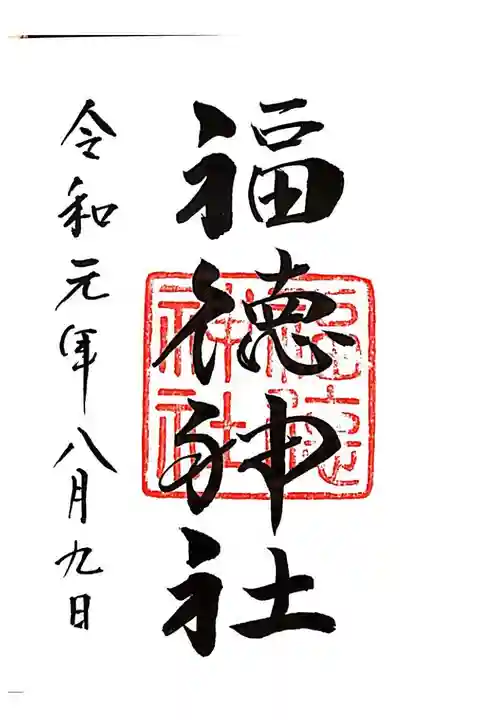 福徳神社
令和元年八月九日
福徳
神社